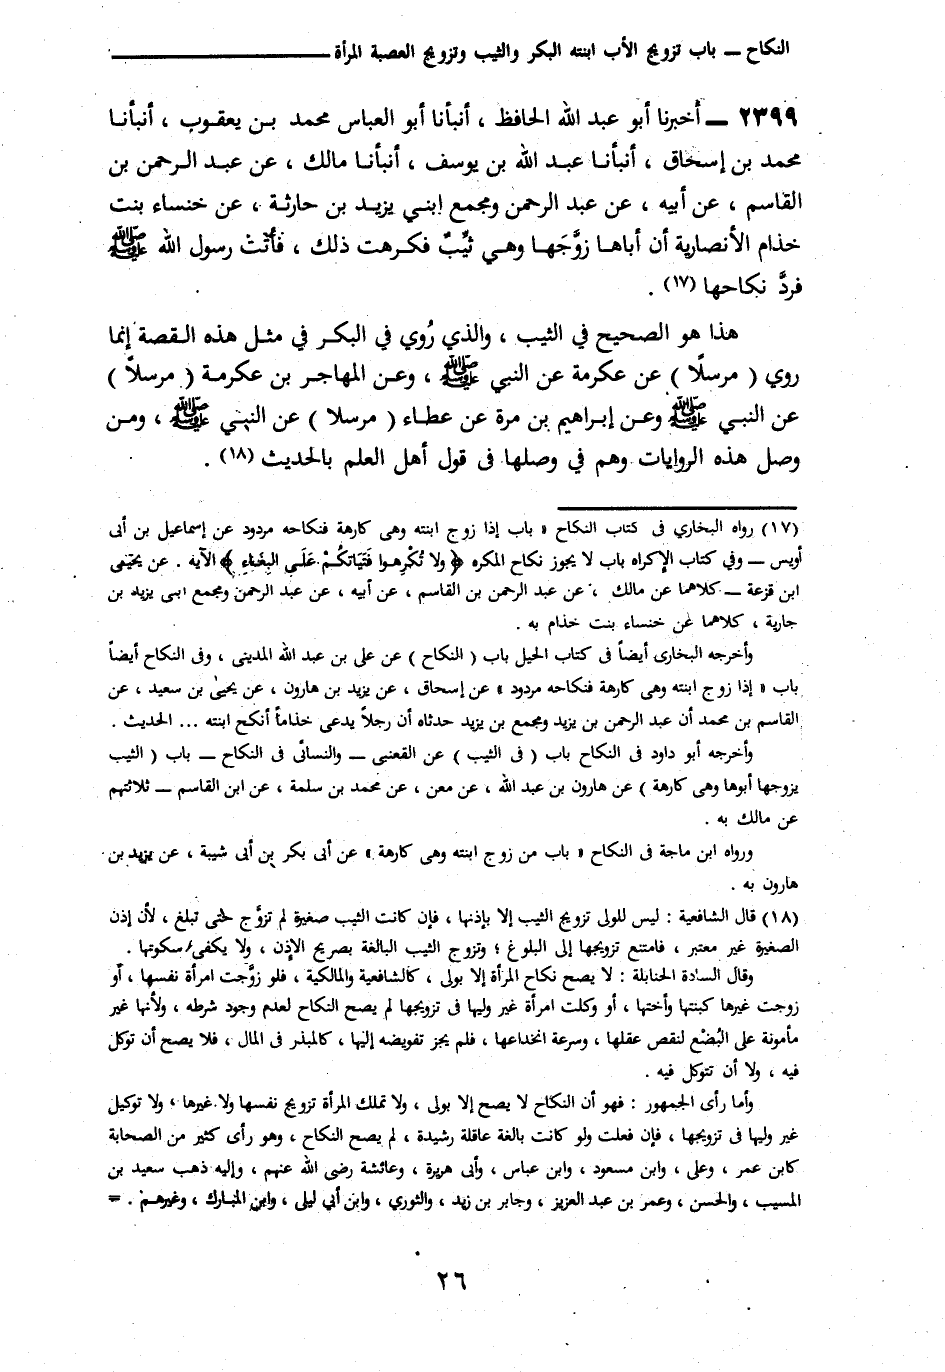 النكاح — باب تزويج الأب ابنته البكر والثيب وتزويج العصبة المرأة
٢٣٩٩ — أخبرنا أبو عبد الله الحافظ ، أنبأنا أبو العباس محمد بن يعقوب ، أنبأنا
محمد بن إسحاق ، أنبأنا عبد الله بن يوسف ، أنبأنا مالك ، عن عبد الرحمن بن
القاسم ، عن أبيه ، عن عبد الرحمن ومجمع ابني يزيد بن حارثة ، عن خنساء بنت
خذام الأنصارية أن أباها زوَّجَها وهي ثيِّبٌ فكرهت ذلك ، فأتتْ رسول الله ﷺ
فردَّ نكاحها (١٧) .
هذا هو الصحيح في الثيب ، والذي رُوي في البكر في مثل هذه القصة إنما
روي ( مرسلًا ) عن عكرمة عن النبي ﷺ ، وعن المهاجر بن عكرمة ( مرسلاً )
عن النبي ﷺ وعن إبراهيم بن مرة عن عطاء ( مرسلا ) عن النبي ﷺ ، ومن
وصل هذه الروايات وهم في وصلها فى قول أهل العلم بالحديث (١٨) .
(١٧) رواه البخاري فى كتاب النكاح « باب إذا زوج ابنته وهى كارهة فنكاحه مردود عن إسماعيل بن أبى
أويس — وفي كتاب الإكراه باب لا يجوز نكاح المكره ﴿ ولا تُكْرِهوا فَتَيَاتكُمْ عَلَى البِغَاءِ ﴾ الآيه . عن يحيى
ابن قزعة — كلاهما عن مالك ، عن عبد الرحمن بن القاسم ، عن أبيه ، عن عبد الرحمن ومجمع ابنى يزيد بن
جارية ، كلاهما عن خنساء بنت خذام به .
وأخرجه البخارى أيضاً فى كتاب الحيل باب ( النكاح ) عن على بن عبد الله المدينى ، وفى النكاح أيضاً
باب « إذا زوج ابنته وهى كارهة فنكاحه مردود » عن إسحاق ، عن يزيد بن هارون ، عن يحيىٰ بن سعيد ، عن
القاسم بن محمد أن عبد الرحمن بن يزيد ومجمع بن يزيد حدثاه أن رجلاً يدعى خذاماً أنكح ابنته ... الحديث .
وأخرجه أبو داود فى النكاح باب ( فى الثيب ) عن القعنبى — والنسائى فى النكاح — باب ( الثيب
يزوجها أبوها وهى كارهة ) عن هارون بن عبد الله ، عن معن ، عن محمد بن سلمة ، عن ابن القاسم — ثلاثتهم
عن مالك به .
ورواه ابن ماجة فى النكاح « باب من زوج ابنته وهى كارهة » عن أبى بكر بن أبى شيبة ، عن يزيد بن
هارون به .
(١٨) قال الشافعية : ليس للولى تزويج الثيب إلا بإذنها ، فإن كانت الثيب صغيرة لم تزوَّج حتى تبلغ ، لأن إذن
الصغيرة غير معتبر ، فامتنع تزويجها إلى البلوغ ؛ وتزوج الثيب البالغة بصريح الإذن ، ولا يكفى سكوتها .
وقال السادة الحنابلة : لا يصح نكاح المرأة إلا بولى ، كالشافعية والمالكية ، فلو زوَّجت امرأة نفسها ، أو
زوجت غيرها كبنتها وأختها ، أو وكلت امرأة غير وليها فى تزويجها لم يصح النكاح لعدم وجود شرطه ، ولأنها غير
مأمونة على البُضْع لنقص عقلها ، وسرعة انخداعها ، فلم يجز تفويضه إليها ، كالمبذر فى المال ، فلا يصح أن توكل
فيه ، ولا أن تتوكل فيه .
وأما رأى الجمهور : فهو أن النكاح لا يصح إلا بولى ، ولا تملك المرأة تزويج نفسها ولا غيرها ، ولا توكيل
غير وليها فى تزويجها ، فإن فعلت ولو كانت بالغة عاقلة رشيدة ، لم يصح النكاح ، وهو رأى كثير من الصحابة
كابن عمر ، وعلى ، وابن مسعود ، وابن عباس ، وأبى هريرة ، وعائشة رضى الله عنهم ، وإليه ذهب سعيد بن
المسيب ، والحسن ، وعمر بن عبد العزيز ، وجابر بن زيد ، والثوري ، وابن أبي ليلى ، وابن المبارك ، وغيرهم . =
٢٦